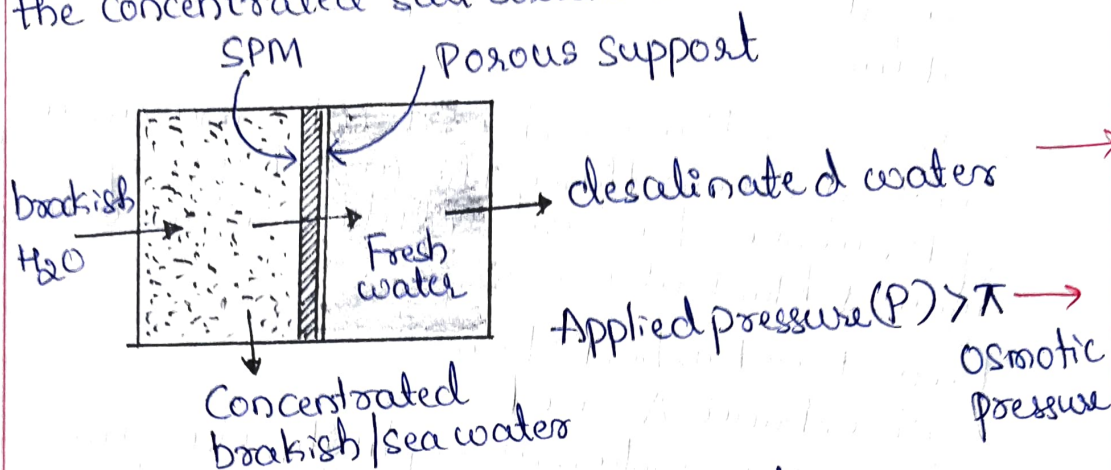 the concentrated
SPM
Porous support
brackish
H2O
Fresh
water
desalinated water
Applied pressure (P) > π
osmotic
pressure
Concentrated
brakish/sea water